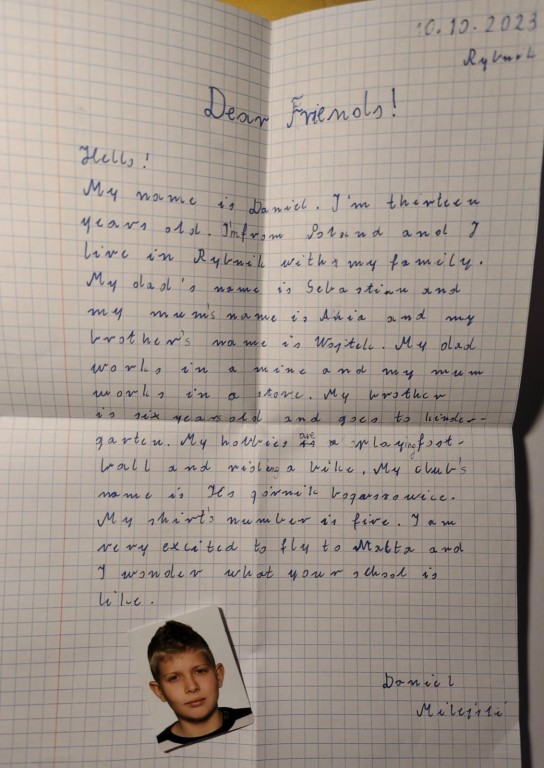 10.10.2023
Rybnik
Dear Friends!
Hello!
My name is Daniel. I'm thirteen
years old. I'm from Poland and I
live in Rybnik with my family.
My dad's name is Sebastian and
my mum's name is Ania and my
brother's name is Wojtek. My dad
works in a mine and my mum
works in a store. My brother
is six years old and goes to kinder-
garten. My hobbies are playing foot-
ball and riding a bike. My club's
name is Ks górnik boguszowice.
My shirt's number is five. I am
very excited to fly to Malta and
I wonder what your school is
like.
Daniel